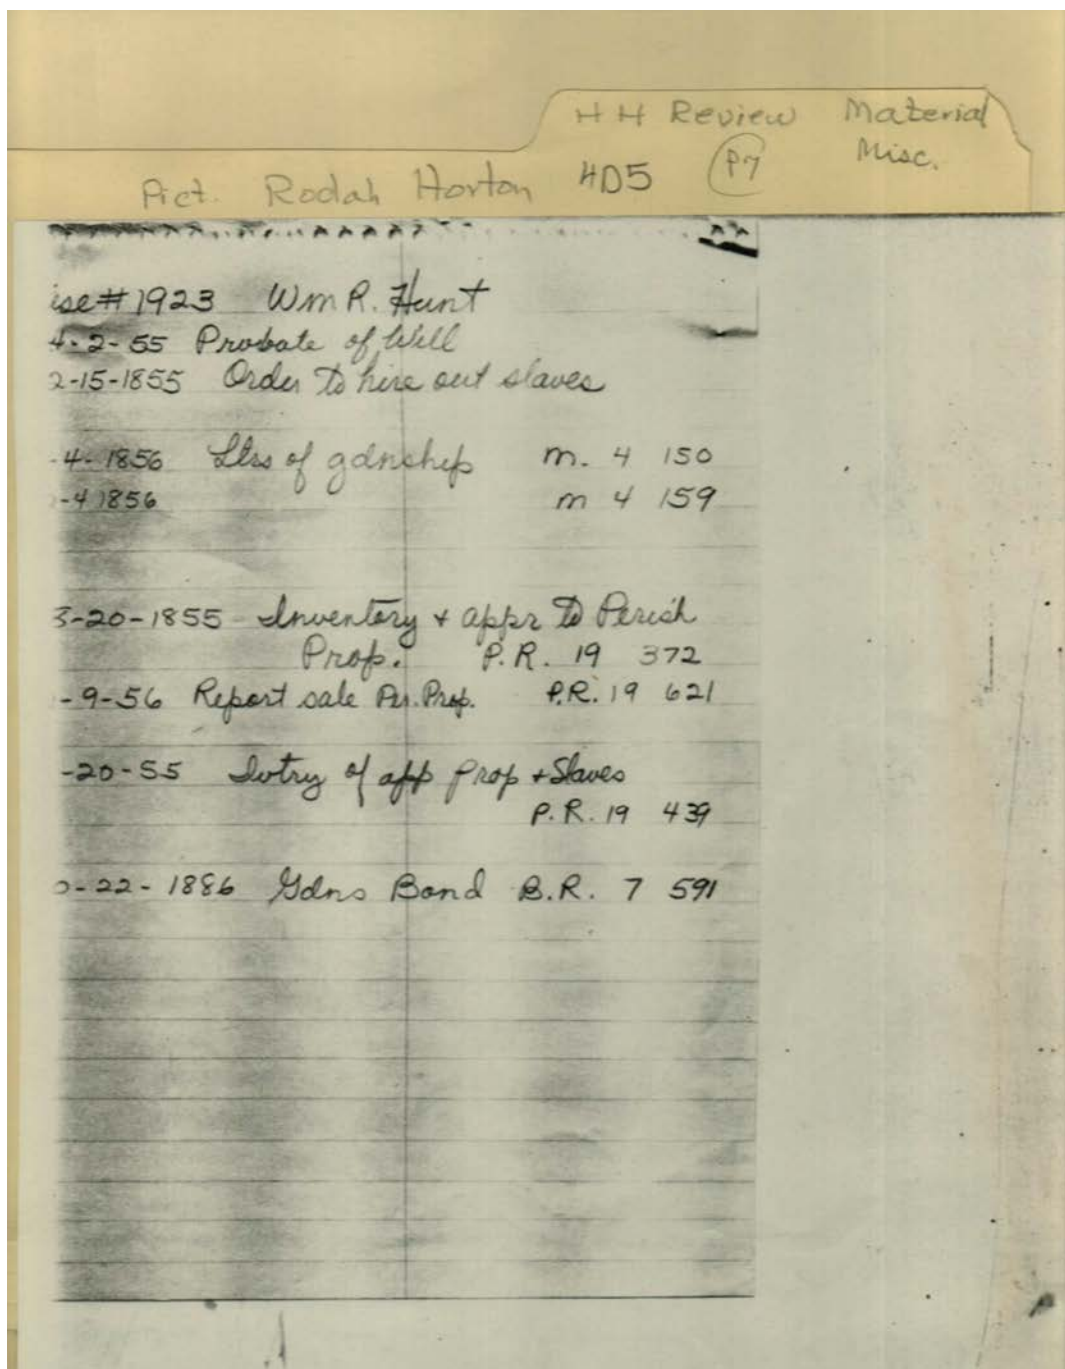 HH Review Material
Pict. Rodah Horton 4D5 P7 Misc.
ise #1923 Wm R. Hunt
4-2-55 Probate of Will
2-15-1855 Order to hire out slaves
-4-1856 Ltrs of gdnship m. 4 150
-4 1856 m 4 159
3-20-1855 Inventory + appr to Perish
Prop. P.R. 19 372
-9-56 Report sale Per. Prop. P.R. 19 621
-20-55 Ivtry of app Prop + Slaves
P.R. 19 439
-22-1886 Gdns Bond B.R. 7 591